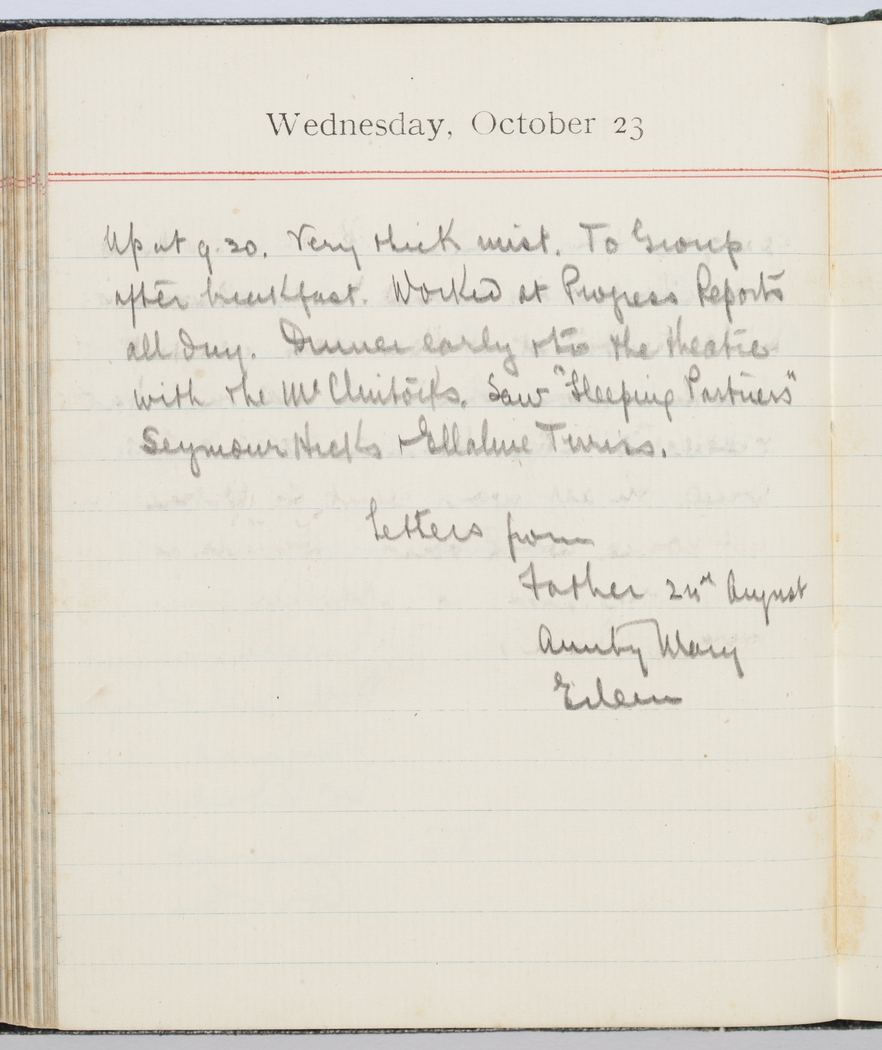 Wednesday, October 23
Up at 9.30. Very thick mist. To Group
after breakfast. Worked at Progress Reports
all day. Dinner early & to the theatre
with the McClintocks. Saw "Sleeping Partners"
Seymour Hicks & Ellaline Terriss.
Letters from
Father 24th August
Aunty Mary
Eileen